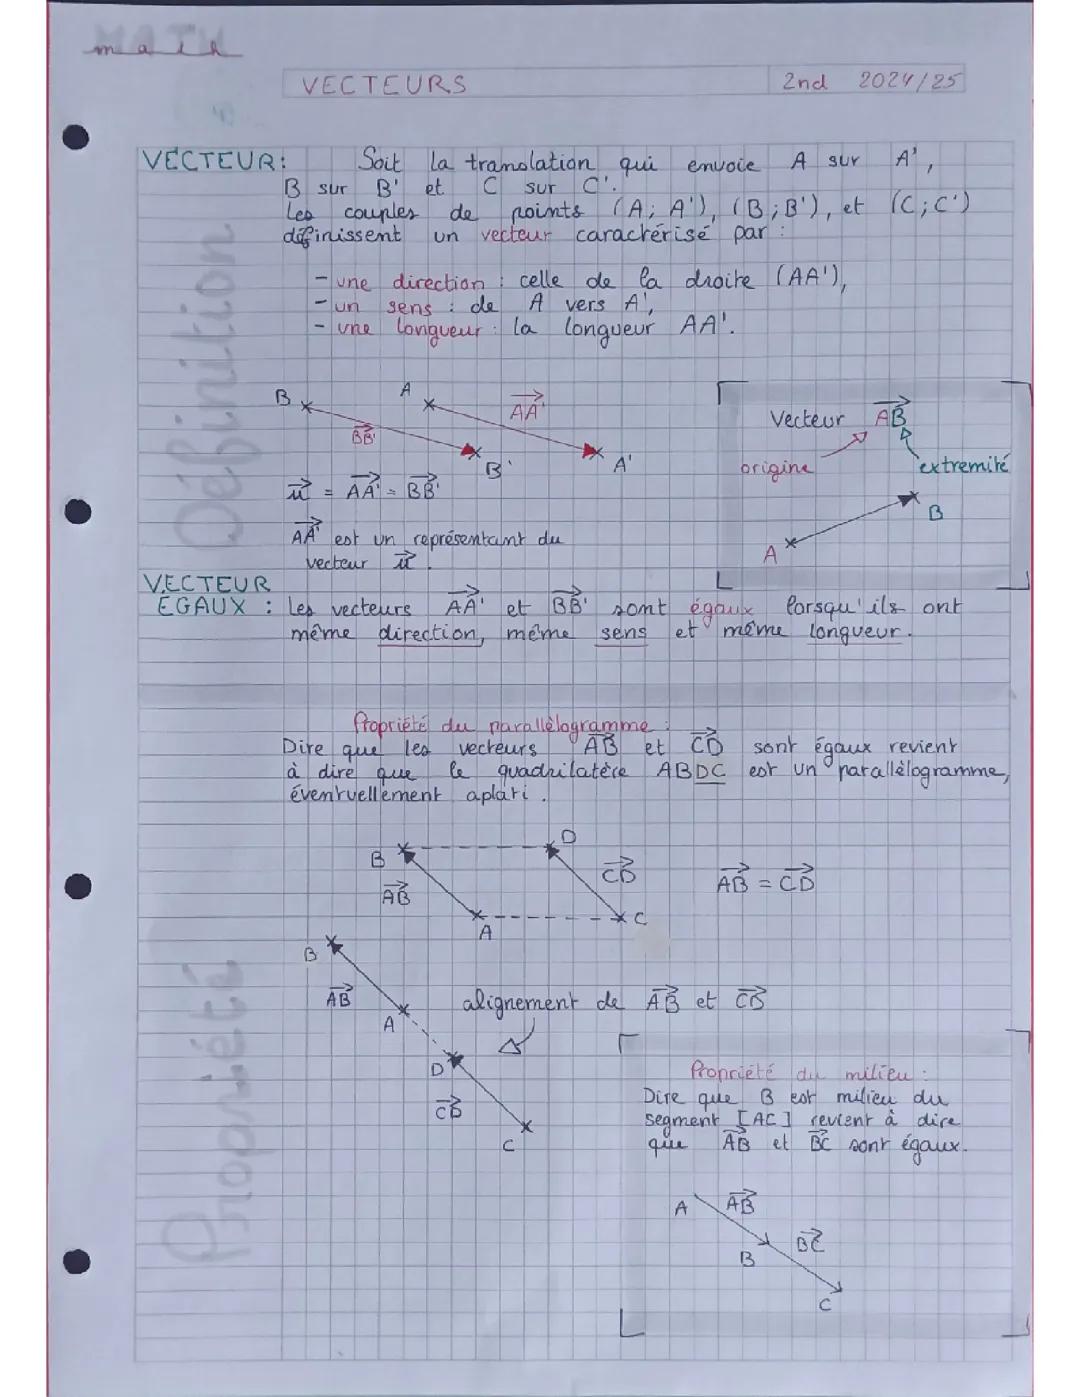 math
VECTEURS
2nd 2024/25
VECTEUR: Soit la translation qui envoie A sur A',
B sur B' et C sur C'.
Les couples de points (A; A'), (B;B'), et (C;C')
définissent un vecteur caractérisé par :
- une direction : celle de la droite (AA'),
- un sens : de A vers A',
- une longueur : la longueur AA'.
Définition
B
A
AA'
BB'
B'
A'
Vecteur AB
origine
extremité
B
A
u = AA' = BB'
AA' est un représentant du
vecteur u.
VECTEUR
EGAUX : Les vecteurs AA' et BB' sont égaux lorsqu'ils ont
même direction, même sens et même longueur.
Propriété du parallèlogramme :
Dire que les vecteurs AB et CD sont égaux revient
à dire que le quadrilatère ABDC est un parallèlogramme,
éventuellement aplati.
D
B
CD
AB = CD
AB
C
A
B
Propriété
AB
alignement de AB et CD
A
D
CD
C
Propriété du milieu :
Dire que B est milieu du
segment [AC] revient à dire
que AB et BC sont égaux.
A
AB
BC
B
C